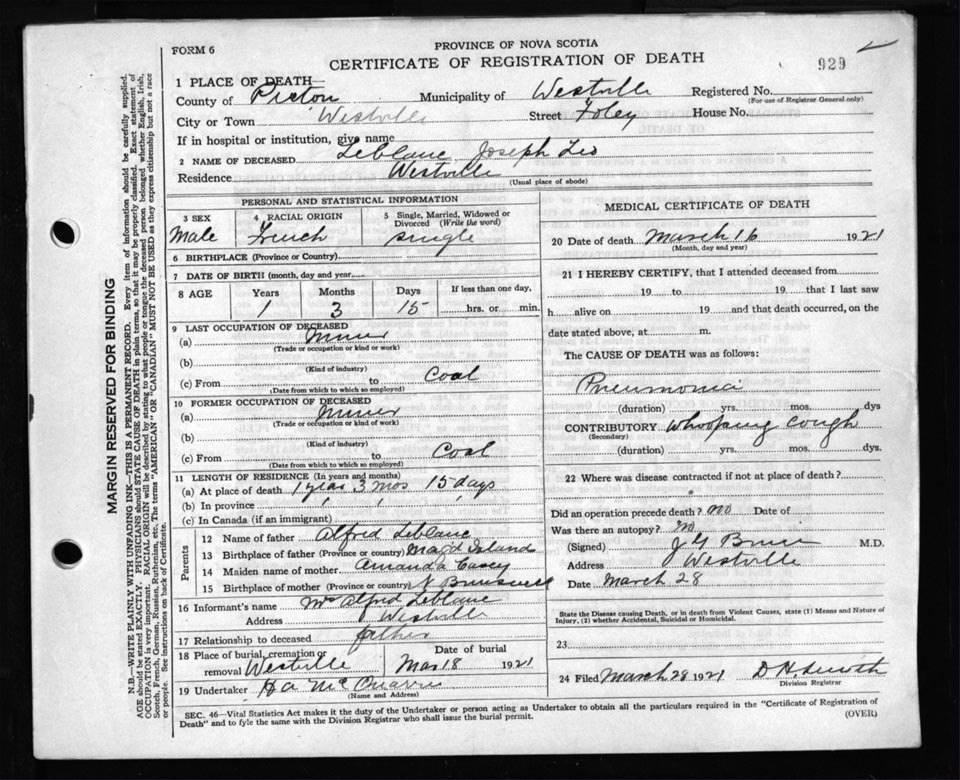 FORM 6
PROVINCE OF NOVA SCOTIA
CERTIFICATE OF REGISTRATION OF DEATH
929
1 PLACE OF DEATH—
County of Pictou Municipality of Westville Registered No.
(For use of Registrar General only)
City or Town Westville Street Foley House No.
If in hospital or institution, give name
2 NAME OF DECEASED Leblanc Joseph Leo
Residence Westville
(Usual place of abode)
PERSONAL AND STATISTICAL INFORMATION
3 SEX 4 RACIAL ORIGIN 5 Single, Married, Widowed or Divorced (Write the word)
Male French single
6 BIRTHPLACE (Province or Country)
7 DATE OF BIRTH (month, day and year)
8 AGE Years Months Days If less than one day,
1 3 15 hrs. or min.
9 LAST OCCUPATION OF DECEASED
(a) Miner
(Trade or occupation or kind or work)
(b)
(Kind of industry)
(c) From to Coal
(Date from which to which so employed)
10 FORMER OCCUPATION OF DECEASED
(a) Miner
(Trade or occupation or kind of work)
(b)
(Kind of industry)
(c) From to Coal
(Date from which to which so employed)
11 LENGTH OF RESIDENCE (In years and months)
(a) At place of death 1 year 3 Mos 15 days
(b) In province
(c) In Canada (if an immigrant)
Parents
12 Name of father Alfred Leblanc
13 Birthplace of father (Province or country) Mard Island
14 Maiden name of mother Amanda Casey
15 Birthplace of mother (Province or country) N Brunswick
16 Informant's name Mr Alfred Leblanc
Address Westville
17 Relationship to deceased father
18 Place of burial, cremation or removal Westville Date of burial Mar 18 1921
19 Undertaker
(Name and Address)
MEDICAL CERTIFICATE OF DEATH
20 Date of death March 16 1921
(Month, day and year)
21 I HEREBY CERTIFY, that I attended deceased from
19 to 19 that I last saw
h alive on 19 and that death occurred, on the
date stated above, at m.
The CAUSE OF DEATH was as follows:
Pneumonia
(duration) yrs. mos. dys
CONTRIBUTORY Whooping Cough
(Secondary)
(duration) yrs. mos. dys.
22 Where was disease contracted if not at place of death?
Did an operation precede death? no Date of
Was there an autopsy? no
(Signed) M.D.
Address Westville
Date March 28
State the Disease causing Death, or in death from Violent Causes, state (1) Means and Nature of Injury, (2) whether Accidental, Suicidal or Homicidal.
23
24 Filed March 28 1921
Division Registrar
SEC. 46—Vital Statistics Act makes it the duty of the Undertaker or person acting as Undertaker to obtain all the particulars required in the "Certificate of Registration of
Death" and to fyle the same with the Division Registrar who shall issue the burial permit.
(OVER)
MARGIN RESERVED FOR BINDING
N.B.—WRITE PLAINLY, WITH UNFADING INK—THIS IS A PERMANENT RECORD. Every item of information should be carefully supplied.
AGE should be stated EXACTLY. PHYSICIANS should STATE CAUSE OF DEATH in plain terms, so that it may be properly classified. Exact statement of
OCCUPATION is very important. RACIAL ORIGIN will be described by stating to what people or tongue the deceased person belonged whether English, Irish,
Scotch, French, German, Russian, Ruthenian, etc. The terms "AMERICAN" OR "CANADIAN" MUST NOT BE USED as they express citizenship but not a race
or people. See instructions on back of Certificate.